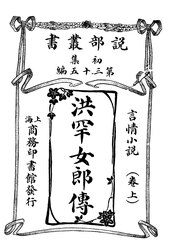 說部叢書
初集
第三十五編
言情小說
(卷上)
洪罕女郎傳
上海
商務印書館發行